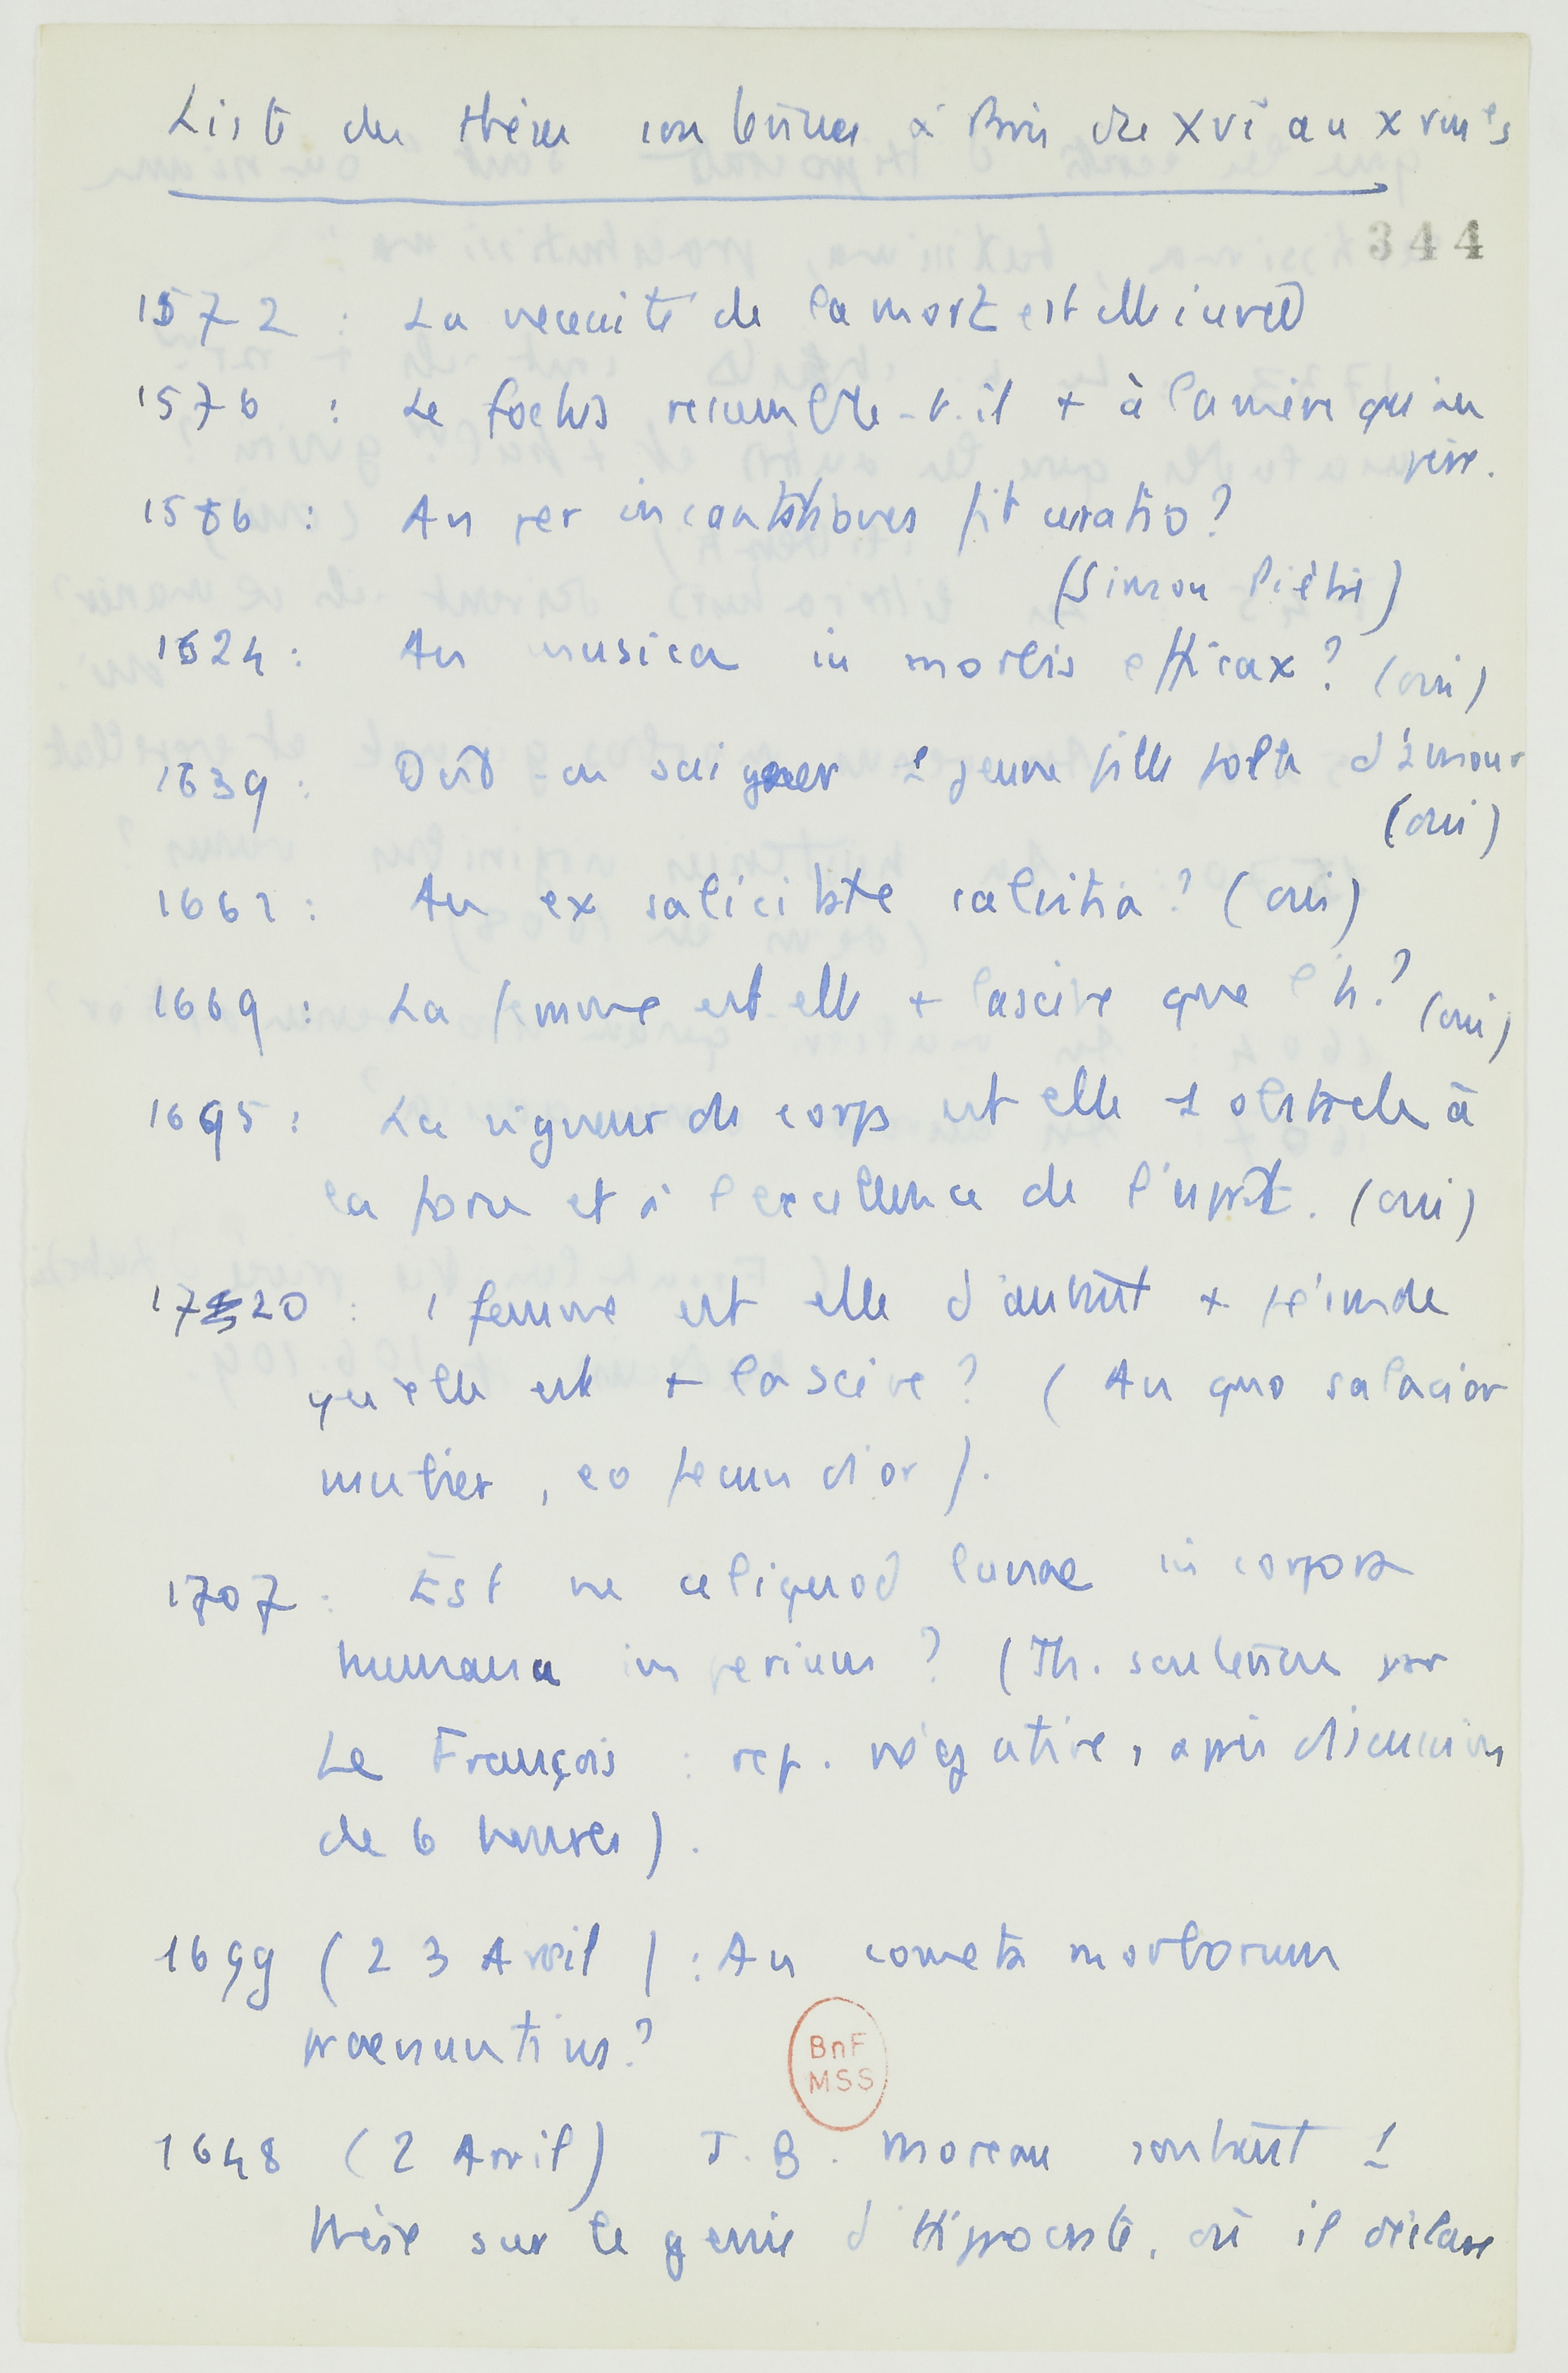 Liste des thèses soutenues à Paris du XVIe au XVIIIe s
344
1572 : La nécessité de la mort est elle innée
1576 : Le foetus ressemble-t-il + à la mère qu'au
père.
1586 : An per incantationes fit curatio?
(Simon Piètre)
1624 : An musica in morbis efficax? (oui)
1639 : Doit-on saigner 1 jeune fille folle d'amour
(oui)
1662 : An ex salacitate calvitia? (oui)
1669 : La femme est-elle + lascive que l'h.? (oui)
1695 : La vigueur du corps est elle 1 obstacle à
la force et à l'excellence de l'esprit. (oui)
1720 : 1 femme est elle d'autant + féconde
qu'elle est + lascive? (An quo salacior
mulier, eo fecundior).
1707 : Est ne aliquod lunae in corpora
humana imperium? (Th. soutenue par
Le François : rép. négative, après discussion
de 6 heures).
1699 (23 Avril) : An cometa morborum
praenuntius?
BnF
MSS
1648 (2 Avril) J.B. Moreau soutient 1
thèse sur le génie d'Hippocrate, où il déclare